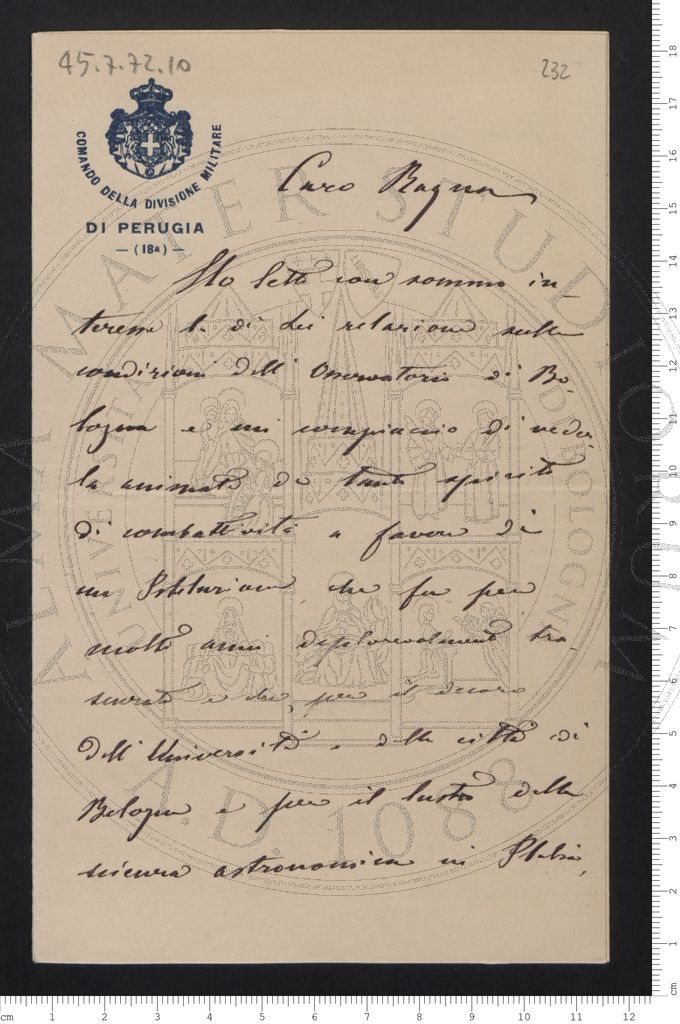 45.7.72.10
232
COMANDO DELLA DIVISIONE MILITARE
DI PERUGIA
— (18ª) —
Caro Ragna
Ho letto con sommo in-
teresse la di Lei relazione sulle
condizioni dell'Osservatorio di Bo-
logna e mi compiaccio di veder-
la animato da tanto spirito
di combattività a favore di
un Istituzione, che fu per
molti anni deplorevolmente tra-
scurata e che, per il decoro
dell'Università, della città di
Bologna e per il lustro della
scienza astronomica in Italia,
ALMA MATER STUDIORUM
UNIVERSITÀ DI BOLOGNA
A.D. 1088